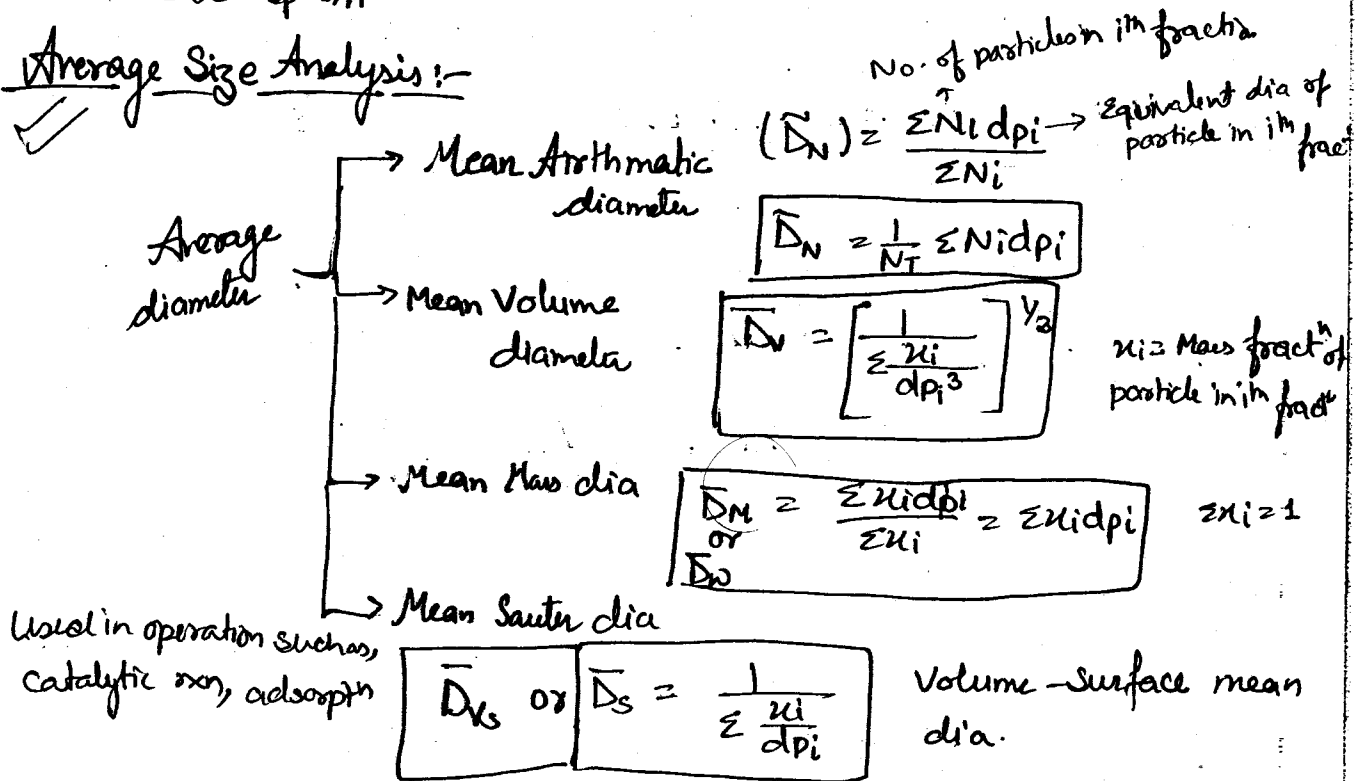 Average Size Analysis :-
No. of particles in ith fractn
Average diameter
→ Mean Arithmatic diameter
(D̄N) = ΣNi dpi / ΣNi → Equivalent dia of particle in ith fract
D̄N = 1/NT ΣNidpi
→ Mean Volume diameter
D̄v = [1 / Σ xi/dpi³]^1/3
xi = Mass fractn of particle in ith fractn
→ Mean Mass dia
D̄M or D̄w = Σxidpi / Σxi = Σxidpi
Σxi = 1
→ Mean Sauter dia
Used in operation such as,
catalytic rxn, adsorptn
D̄vs or D̄s = 1 / Σ xi/dpi
Volume - Surface mean
dia.